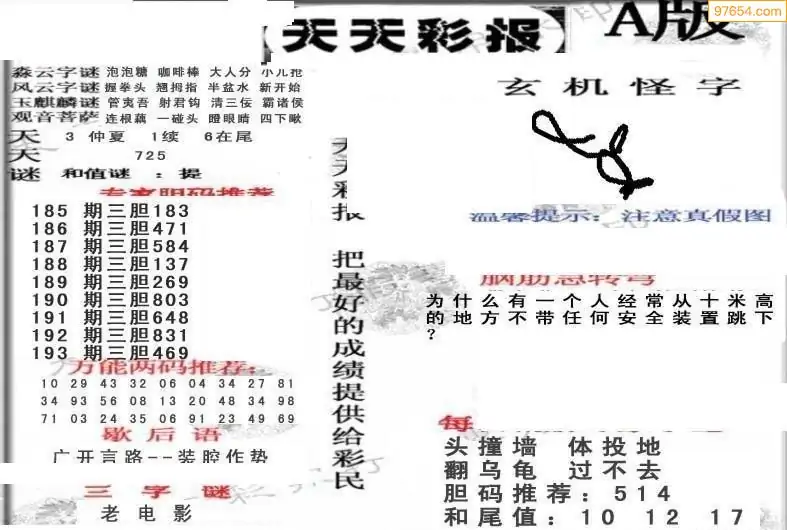 97654.com
天天彩报
A版
森云字谜 泡泡糖 咖啡棒 大人分 小儿抢
风云字谜 握拳头 翘拇指 半盆水 新开始
玉麒麟谜 管夷吾 射君钩 清三佞 霸诸侯
观音菩萨 连根藕 一碰头 瞪眼睛 四下瞅
天 3 仲夏 1续 6在尾
天 725
谜 和值谜 : 提
专家胆码推荐
185 期三胆183
186 期三胆471
187 期三胆584
188 期三胆137
189 期三胆269
190 期三胆803
191 期三胆648
192 期三胆831
193 期三胆469
万能两码推荐:
10 29 43 32 06 04 34 27 81
34 93 56 08 13 20 48 34 98
71 03 24 35 06 91 23 49 69
歇后语
广开言路--装腔作势
三字谜
老电影
天天彩报 把最好的成绩提供给彩民
玄机怪字
温馨提示: 注意真假图
脑筋急转弯
为什么有一个人经常从十米高
的地方不带任何安全装置跳下
?
每
头撞墙 体投地
翻乌龟 过不去
胆码推荐: 514
和尾值: 10 12 17